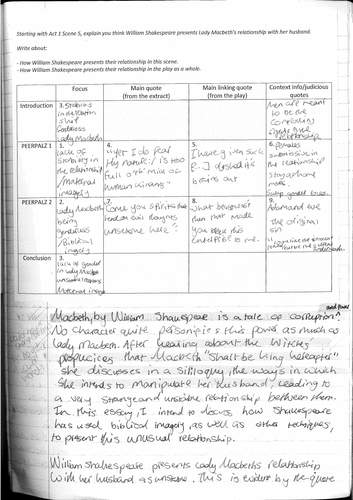 Starting with Act 1 Scene 5, explain you think William Shakespeare presents Lady Macbeth's relationship with her husband.
Write about:
- How William Shakespeare presents their relationship in this scene.
- How William Shakespeare presents their relationship in the play as a whole.
Focus
Main quote
(from the extract)
Main linking quote
(from the play)
Context info/judicious
quotes
Introduction
3.
Lady Macbeth
Men are meant
to be the
relationship
PEERPALZ 1
1.
lack of
stability in
the relationship
/maternal
imagery
4.
"yet I do fear
thy nature; is too
full o'th' milk of
human kindness"
5.
I have given suck
[...] dashed the
brains out
6. females
submissive in
the relationship
stay at home
PEERPALZ 2
2.
Lady Macbeth
being
genderless
/Biblical
7.
Come you spirits that
unsex me here"
8.
What beast was't
then that made
you break this
enterprise to me.
9.
the original
sin
Conclusion
3.
lack of gender
in Lady Macbeth
Macbeth, by William Shakespeare is a tale of corruption and power
No character quite personifies this power as much as
Lady Macbeth. After hearing about the Witches'
prophecies that Macbeth "Shall be King hereafter"
she discusses in a soliloquy, the ways in which
she intends to manipulate her husband, leading to
a very strange and unstable relationship between them.
In this essay, I intend to discuss how Shakespeare
has used biblical imagery, as well as other techniques,
to present this unusual relationship.
William Shakespeare presents Lady Macbeth's relationship
with her husband as unstable. This is evident by the quote